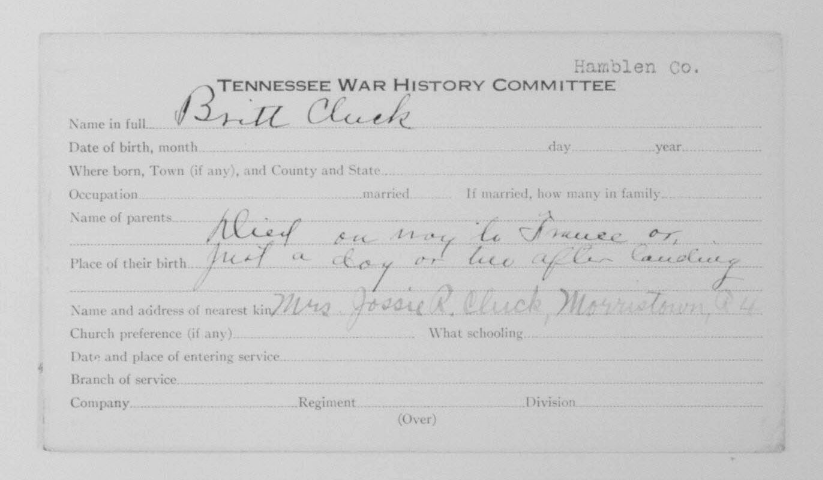 Hamblen Co.
TENNESSEE WAR HISTORY COMMITTEE
Name in full Britt Cluck
Date of birth, month day year
Where born, Town (if any), and County and State
Occupation married If married, how many in family
Name of parents
Died on way to France or,
Place of their birth just a day or two after landing
Name and address of nearest kin Mrs. Jossie R. Cluck, Morristown, R4
Church preference (if any) What schooling
Date and place of entering service
Branch of service
Company Regiment Division
(Over)